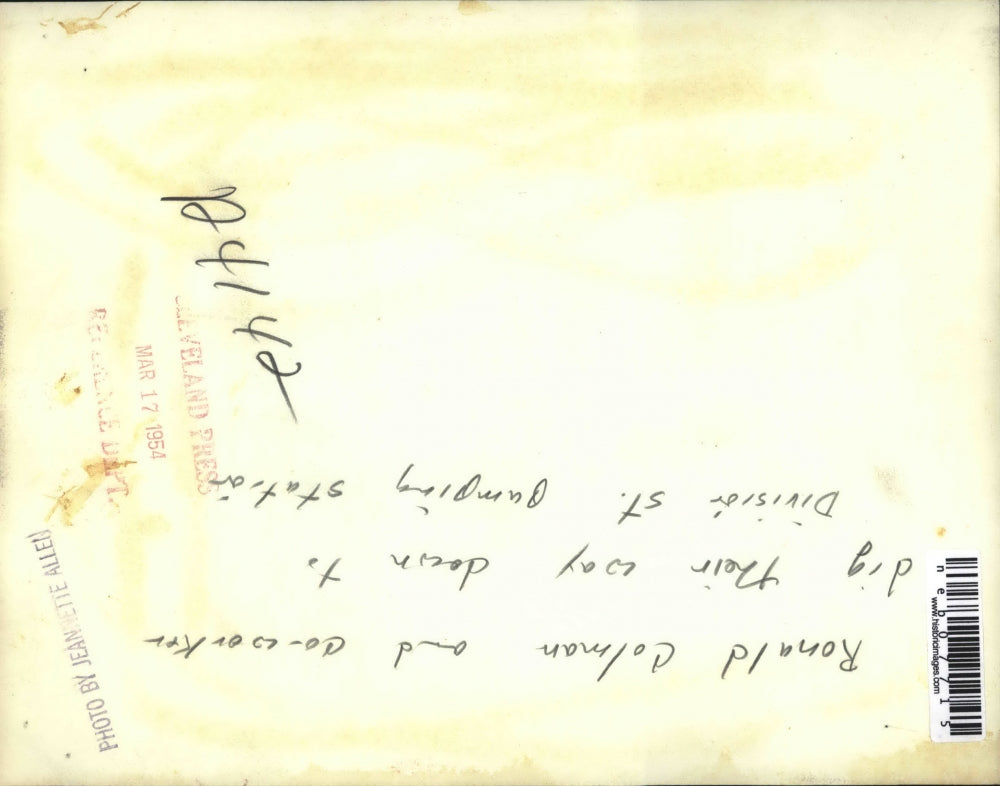 Ronald Colman and co-worker
dig their way down to
Division St. pumping station
CLEVELAND PRESS
MAR 17 1954
REFERENCE DEPT.
PHOTO BY JEANNETTE ALLEN
neb07715
www.historicimages.com